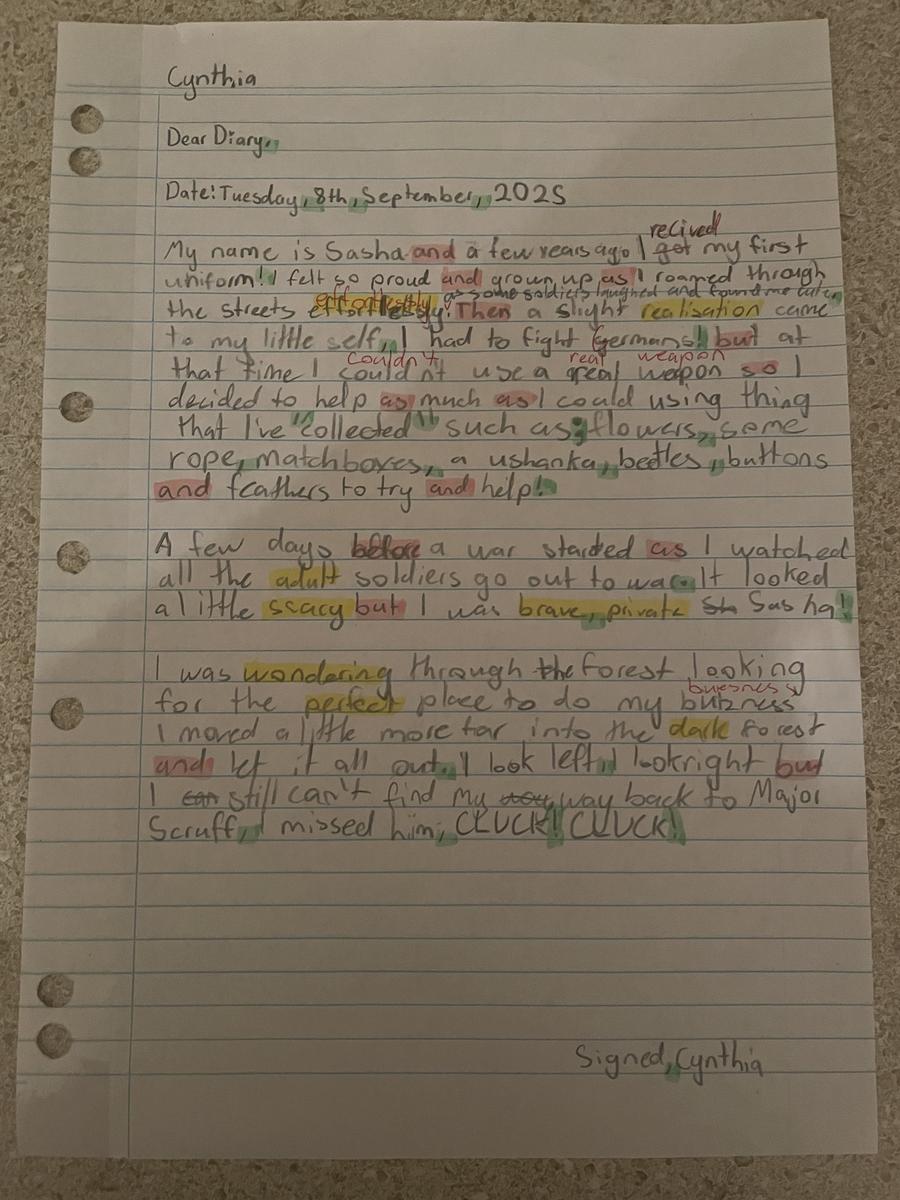 Cynthia
Dear Diary,
Date: Tuesday, 8th, September, 2025
recived
My name is Sasha and a few years ago I got my first
uniform! I felt so proud and grown up as I roamed through
effortlessly as some soldiers laughed and found me cute,
the streets effortlessly! Then a slight realisation came
to my little self, I had to fight Germans! but at
couldn't real weapon
that time I could n't use a real weapon so I
decided to help as much as I could using thing
that I've "collected" such as; flowers, some
rope, matchboxes, a ushanka, beetles, buttons
and feathers to try and help!
A few days before a war starded as I watched
all the adult soldiers go out to war. It looked
a little scary but I was brave, private Sasha!
I was wondering through the forest looking
buisness
for the perfect place to do my buizness
I moved a little more far into the dark forest
and let it all out. I look left, I look right but
I can still can't find my way way back to Major
Scruff, I missed him, CLUCK! CLUCK!
Signed, Cynthia